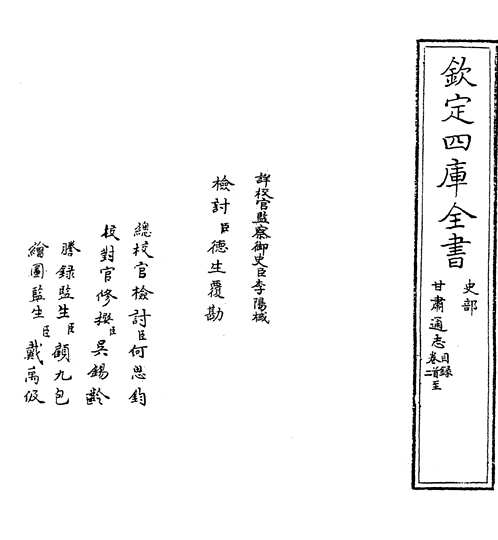 欽定四庫全書
史部
甘肅通志目録卷首至二
詳校官監察御史臣李陽棫
檢討臣德生覆勘
總校官檢討臣何思鈞
校對官修撰臣吳錫齡
謄録監生臣顧九包
繪圖監生臣戴禹伋